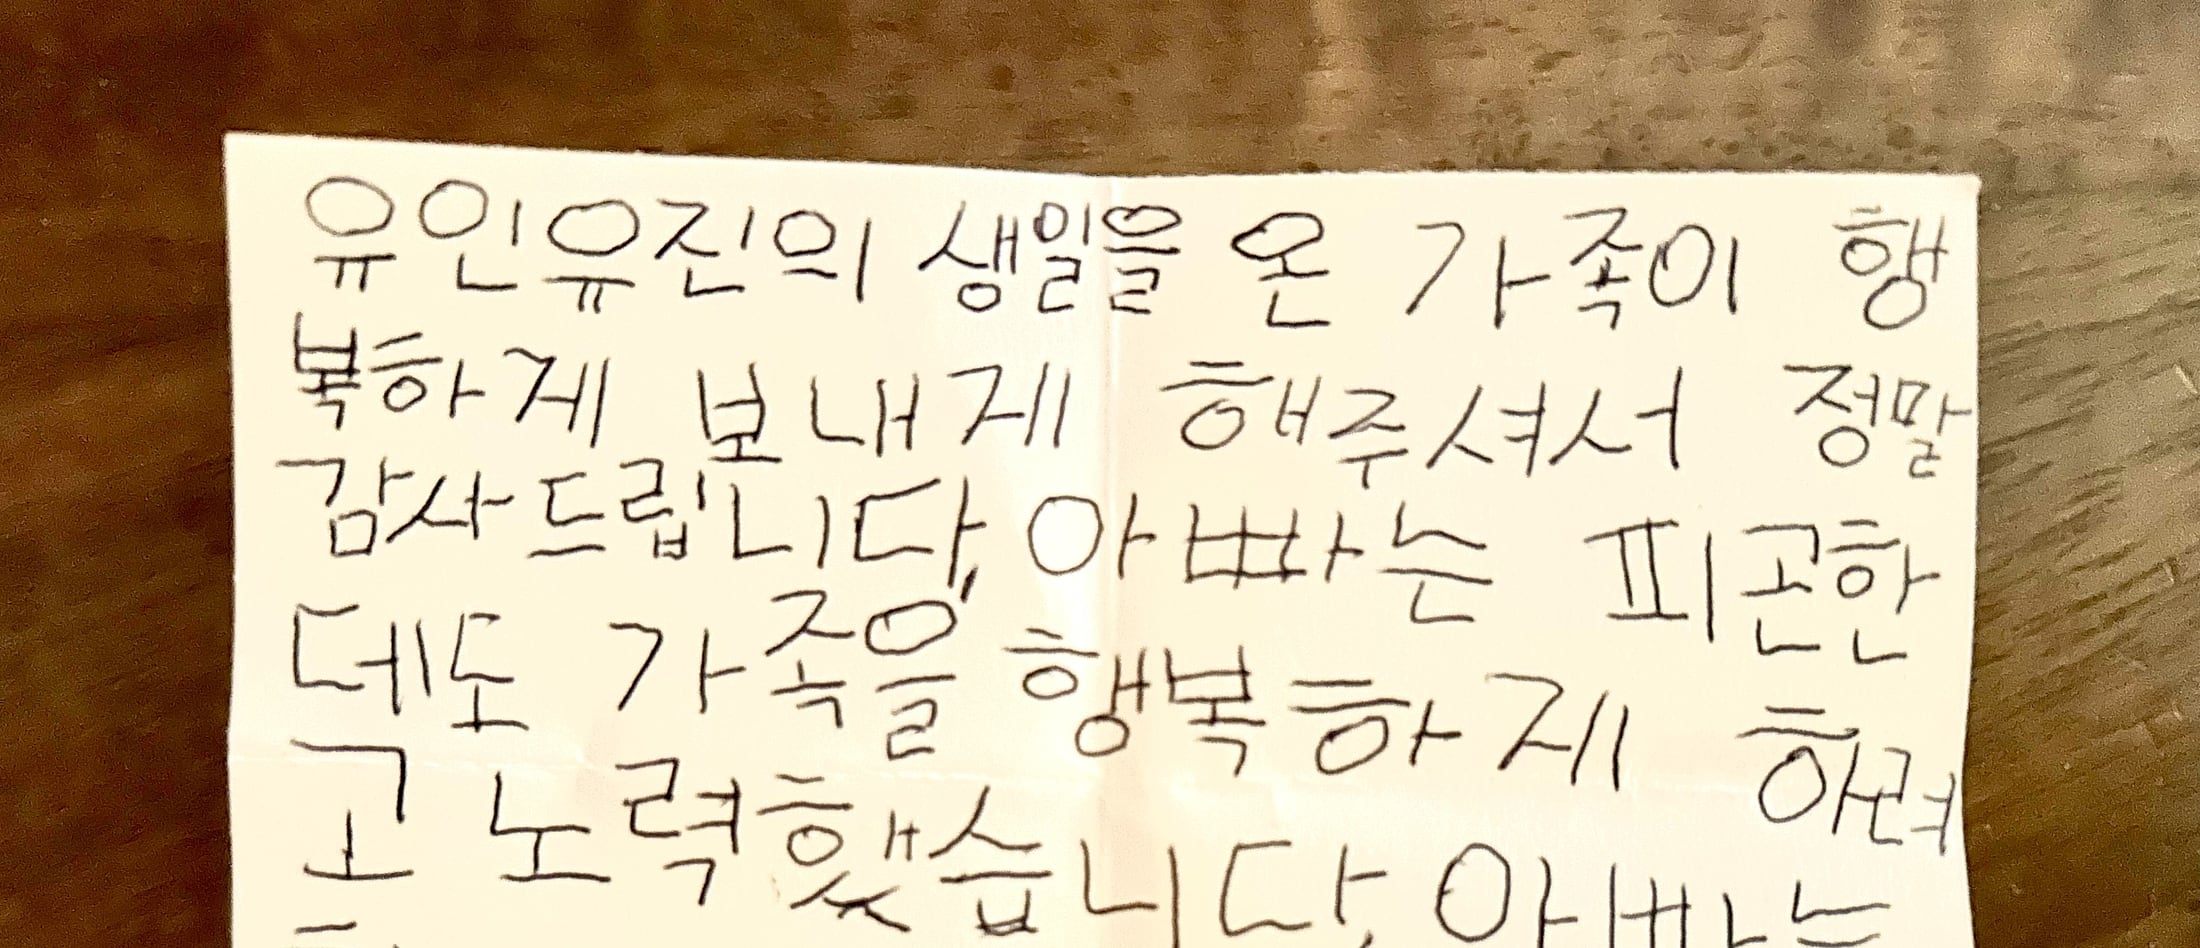 유인유진의 생일을 온 가족이 행
복하게 보내게 해주셔서 정말
감사드립니다, 아빠는 피곤한
데도 가족을 행복하게 하려
고 노력했습니다, 아빠는